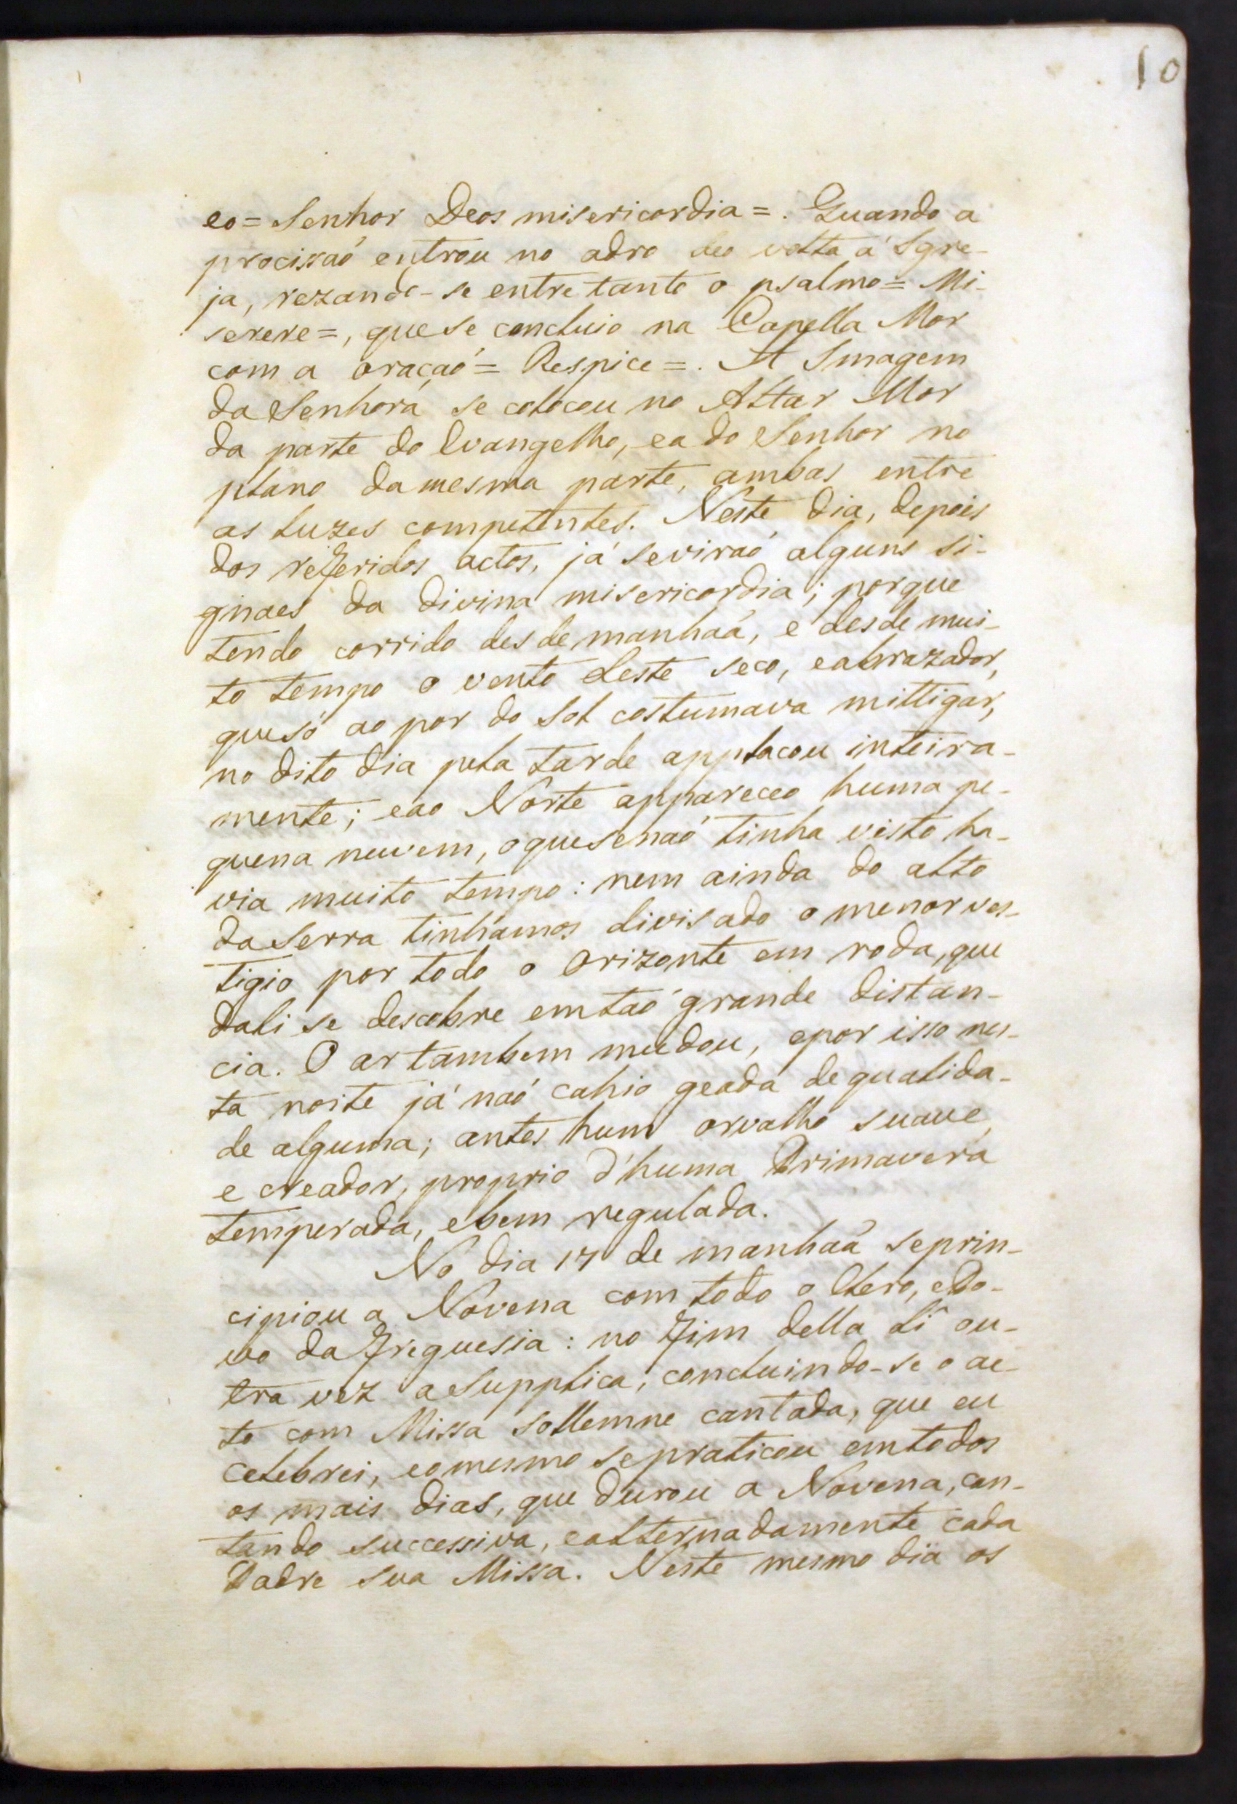 10
eo = Senhor Deos misericordia =. Quando a
procissaõ entrou no adro deo volta á Igre-
ja, rezando-se entre tanto o psalmo = Mi-
serere =, que se concluio na Capella Mor
com a oraçaõ = Respice =. A Imagem
da Senhora se colocou no Altar Mor
da parte do Evangelho, ea do Senhor no
plano da mesma parte, ambas entre
as luzes competentes. Neste dia, depois
dos referidos actos, já sevíraõ alguns si-
gnaes da divina misericordia; porque
tendo corrido desde manhaã, e desde mui-
to tempo o vento Leste seco, eabrazador,
que só ao por do Sol costumava mittigar,
no dito dia pela tarde applacou inteira-
mente; eao Norte appareceo huma pe-
quena nuvem, oquesenaõ tinha visto ha-
via muito tempo: nem ainda do alto
da serra tinhamos divisado o menor ves-
tigio por todo o Orizonte em roda, que
dali se descobre emtaõ grande distan-
cia. O ar tambem mudou, epor isso nes-
ta noite já naõ cahio geada de qualida-
de alguma; antes hum orvalho suave,
e creador, proprio d'huma Primavera
temperada, ebem regulada.
No dia 17 de manhaã seprin-
cipiou a Novena com todo o Clero, ePo-
vo da Freguesia: no fim della Lî ou-
tra vez a Supplica, concluindo-se o ac-
to com Missa sollemne cantada, que eu
celebrei, eomesmo sepraticou emtodos
os mais dias, que durou a Novena, can-
tando successiva, ealternadamente cada
Padre sua Missa. Neste mesmo dia os